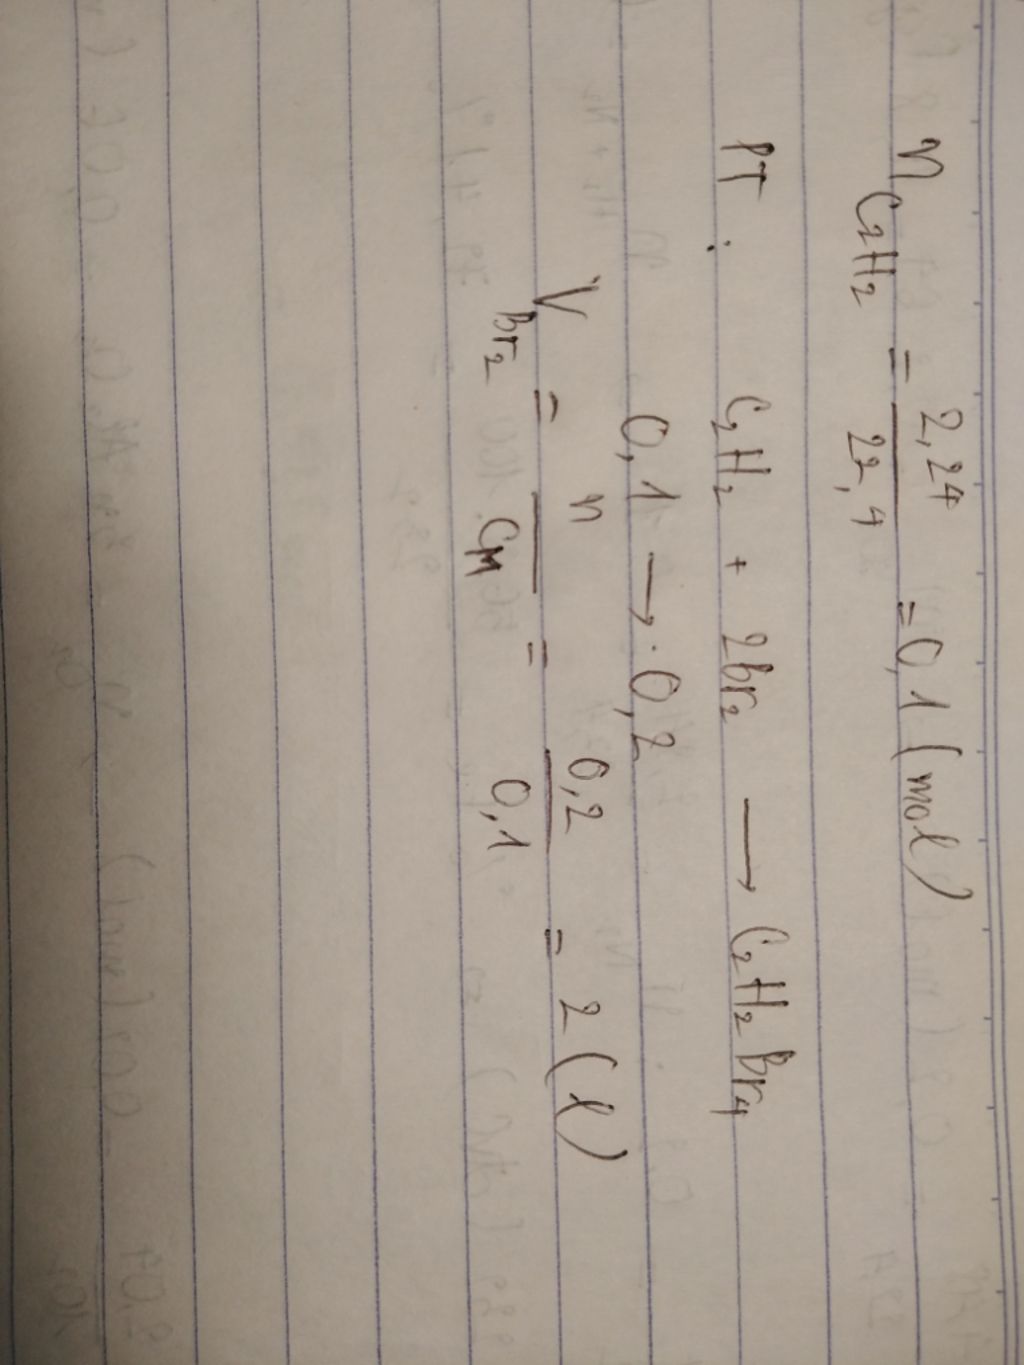 n C₂H₂ = 2,24 / 22,4 = 0,1 (mol)
PT : C₂H₂ + 2Br₂ → C₂H₂Br₄
0,1 → 0,2
V Br₂ = n / CM = 0,2 / 0,1 = 2 (l)